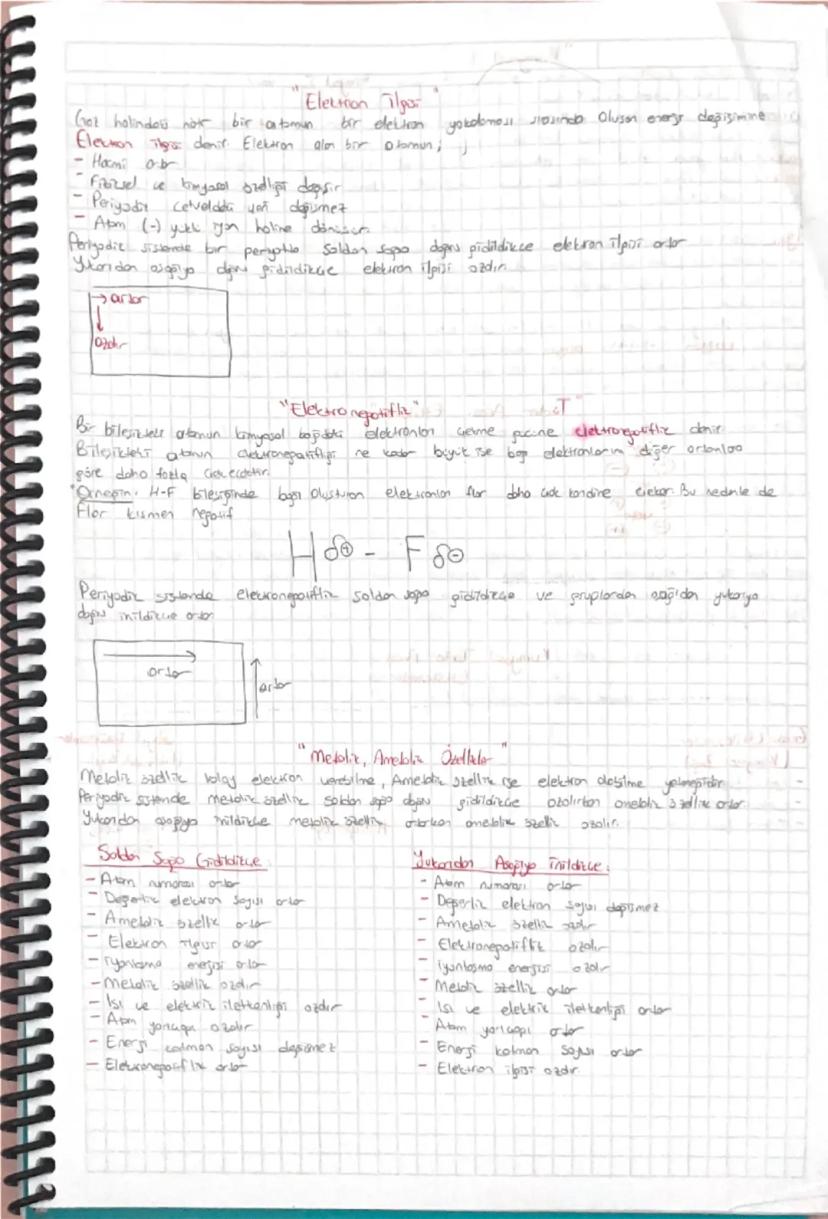 "Elektron ilgisi"
Gaz halindeki nötr bir atomun bir elektron yakalaması sırasında oluşan enerji değişimine
Elektron ilgisi denir. Elektron alan bir atomun;
- Hacmi artar
- Fiziksel ve kimyasal özelliği değişir
- Periyodik cetveldeki yeri değişmez
- Atom (-) yüklü iyon haline dönüşür.
Periyodik sistemde bir periyotta soldan sağa doğru gidildikçe elektron ilgisi artar
Yukarıdan aşağıya doğru gidildikçe elektron ilgisi azalır.
→ artar
↓
azalır
"Elektronegatiflik"
Bir bileşikteki atomun kimyasal bağdaki elektronları çekme gücüne elektronegatiflik denir
Bileşikteki atomun elektronegatifliği ne kadar büyük ise bağ elektronlarını diğer
göre daha fazla çekecektir.
Örneğin: H-F bileşiğinde bağı oluşturan elektronları flor daha çok kendine çeker. Bu nedenle de
Flor kısmen negatif
H δ⊕ - F δ⊖
Periyodik sistemde elektronegatiflik soldan sağa gidildikçe ve gruplardan aşağıdan yukarıya
doğru inildikçe artar
artar
artar
"Metalik, Ametalik Özellikler"
Metalik özellik kolay elektron verebilme, Ametalik özellik ise elektron alabilme yeteneğidir.
Periyodik sistemde metalik özellik soldan sağa doğru gidildikçe azalırken ametalik özellik artar
Yukarıdan aşağıya inildikçe metalik özellik artarken ametalik özellik azalır.
Soldan Sağa Gidildikçe:
- Atom numarası artar
- Değerlik elektron sayısı artar
- Ametalik özellik artar
- Elektron ilgisi artar
- İyonlaşma enerjisi artar
- Metalik özellik azalır
- Isı ve elektrik iletkenliği azalır
- Atom yarıçapı azalır
- Enerji katman sayısı değişmez
- Elektronegatiflik artar
Yukarıdan Aşağıya İnildikçe:
- Atom numarası artar
- Değerlik elektron sayısı değişmez
- Ametalik özellik azalır
- Elektronegatiflik azalır
- İyonlaşma enerjisi azalır
- Metalik özellik artar
- Isı ve elektrik iletkenliği artar
- Atom yarıçapı artar
- Enerji katman sayısı artar
- Elektron ilgisi azalır